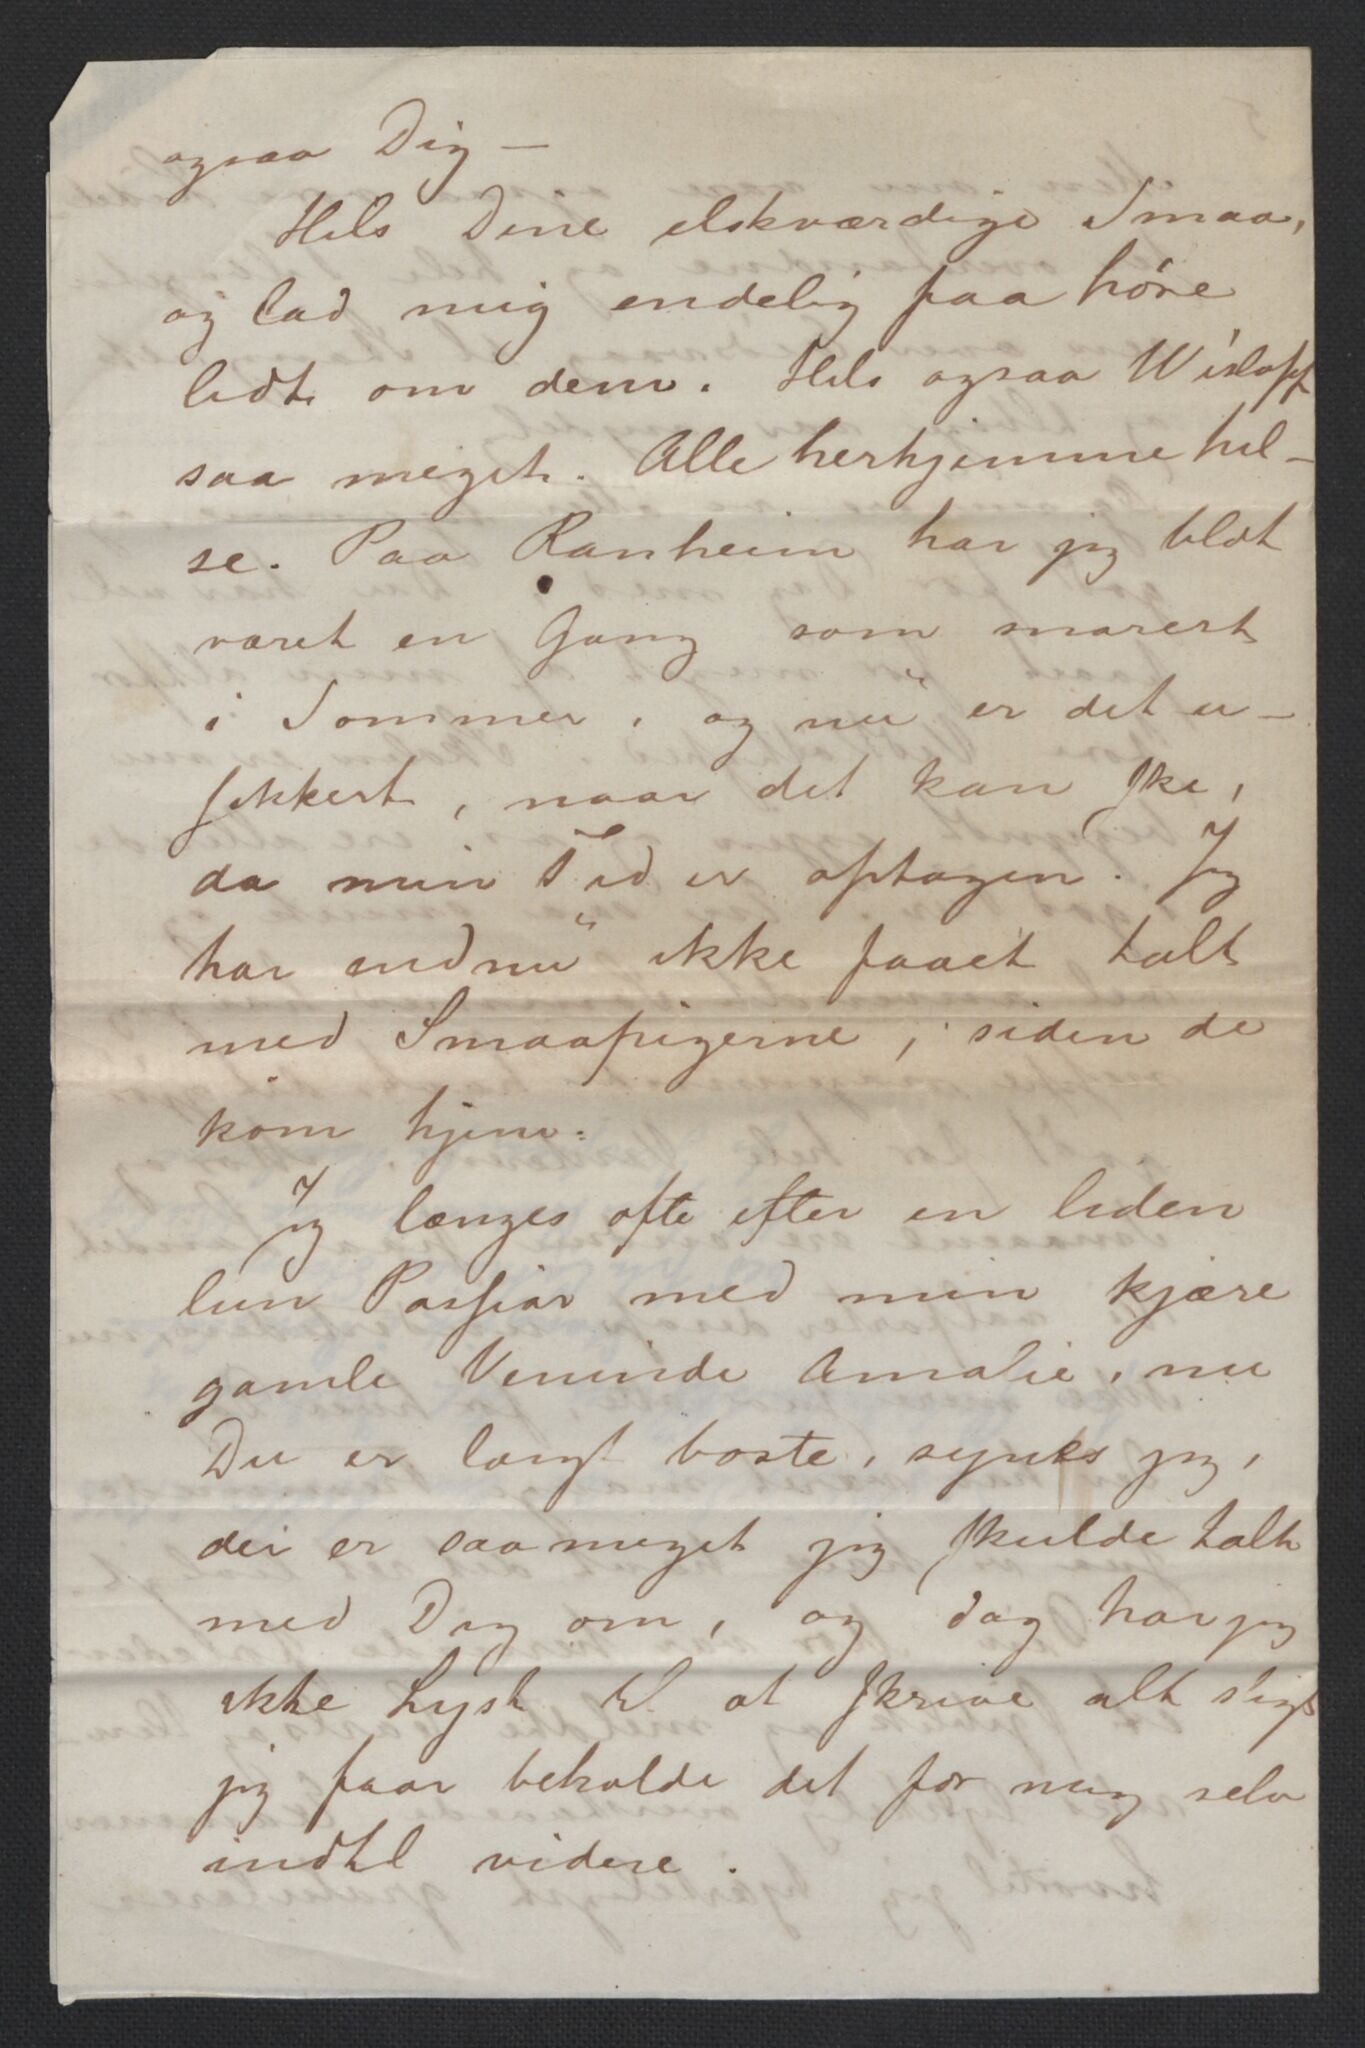 ogsaa Dig —
Hils Dine elskværdige Smaa,
og lad mig endelig faa høre
lidt om dem. Hils ogsaa Wisløff
saa meget. Alle herhjemme hil-
se. Paa Ranheim har jeg blot
været en Gang som snarest
i Sommer, og nu er det u-
sikkert, naar det kan ske,
da min Tid er optagen. Jeg
har endnu ikke faaet talt
med Smaapigerne, siden de
kom hjem.
Jeg længes ofte efter en liden
lun Passiar med min kjære
gamle Veninde Amalie, nu
Du er langt borte, synes jeg,
der er saameget jeg skulde talt
med Dig om, og dog har jeg
ikke Lyst til at skrive alt sligt
jeg faar beholde det for mig selv
indtil videre.